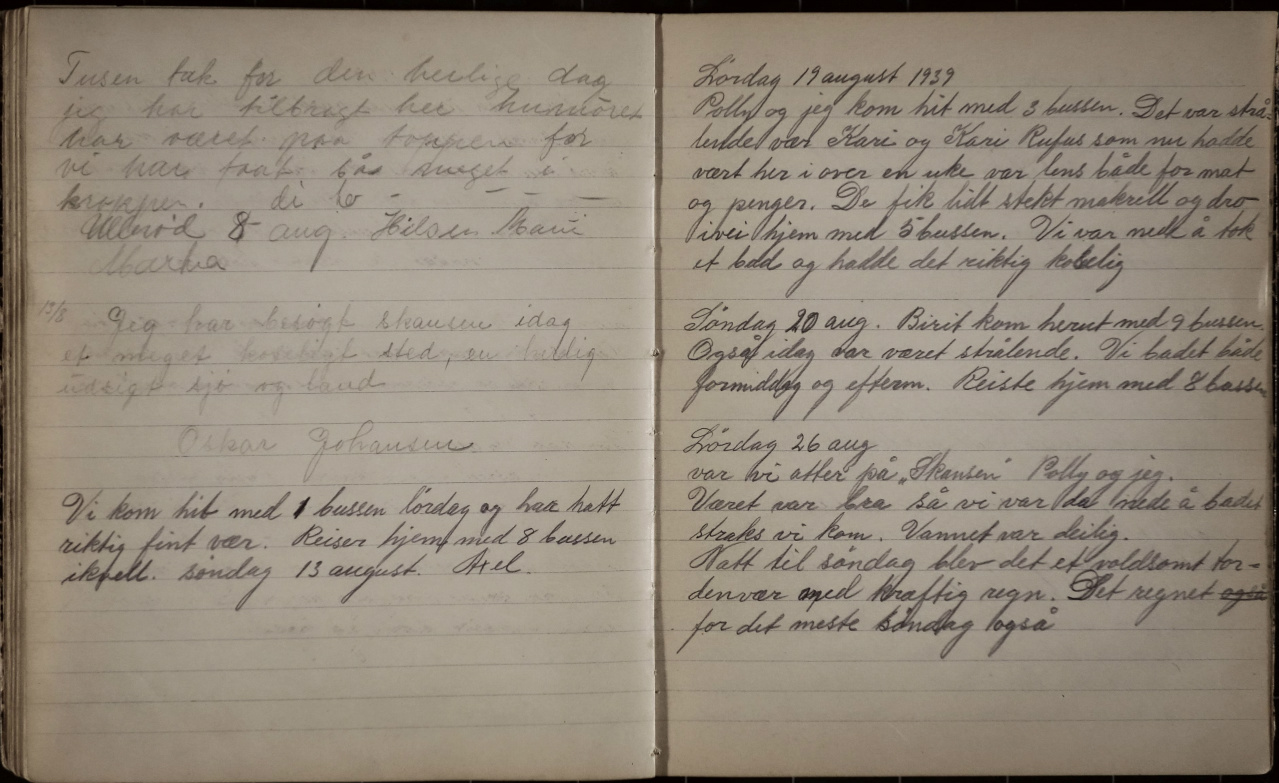 Tusen tak for den herlige dag
jeg har tilbragt her humöret
har været paa toppen for
vi har taat så meget i
kroppen. di to - — — —
Ulleröd 8 aug. Hilsen
Martha
13/8
Jeg har besøgt skansen idag
et meget koseligt sted, en herlig
udsigt sjö og land
Oskar Johansen
Vi kom hit med 1 bussen lördag og har hatt
riktig fint vær. Reiser hjem med 8 bussen
ikvell. söndag 13 august. Axel.
Lördag 19 august 1939
Polly og jeg kom hit med 3 bussen. Det var strå-
lende vær Kari og Kari Rufus som nu hadde
vært her i over en uke var lens både for mat
og penger. De fik lidt stekt makrell og dro
ivei hjem med 5 bussen. Vi var nede å tok
et bad og hadde det riktig koselig
Söndag 20 aug. Birit kom herut med 9 bussen.
Også idag var været strålende. Vi badet både
formiddag og efterm. Reiste hjem med 8 bussen
Lördag 26 aug
var vi atter på „Skansen" Polly og jeg.
Været var bra så vi var da nede å badet
straks vi kom. Vannet var deilig.
Natt til söndag blev det et voldsomt tor-
denvær med kræftig regn. Det regnet også
for det meste söndag også